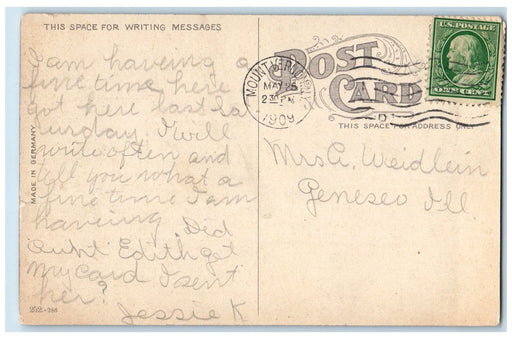 THIS SPACE FOR WRITING MESSAGES
I am having a
fine time here
got here last Sa
turday. I will
write often and
tell you what a
fine time I am
haveing. Did
Aunt Edith get
my card I sent
her?
Jessie K
MADE IN GERMANY
252-286
POST
CARD
MAY 25
2 30 PM
1909
D
U.S. POSTAGE
THIS SPACE FOR ADDRESS ONLY
Mrs A. Weidlein
Geneseo Ill.